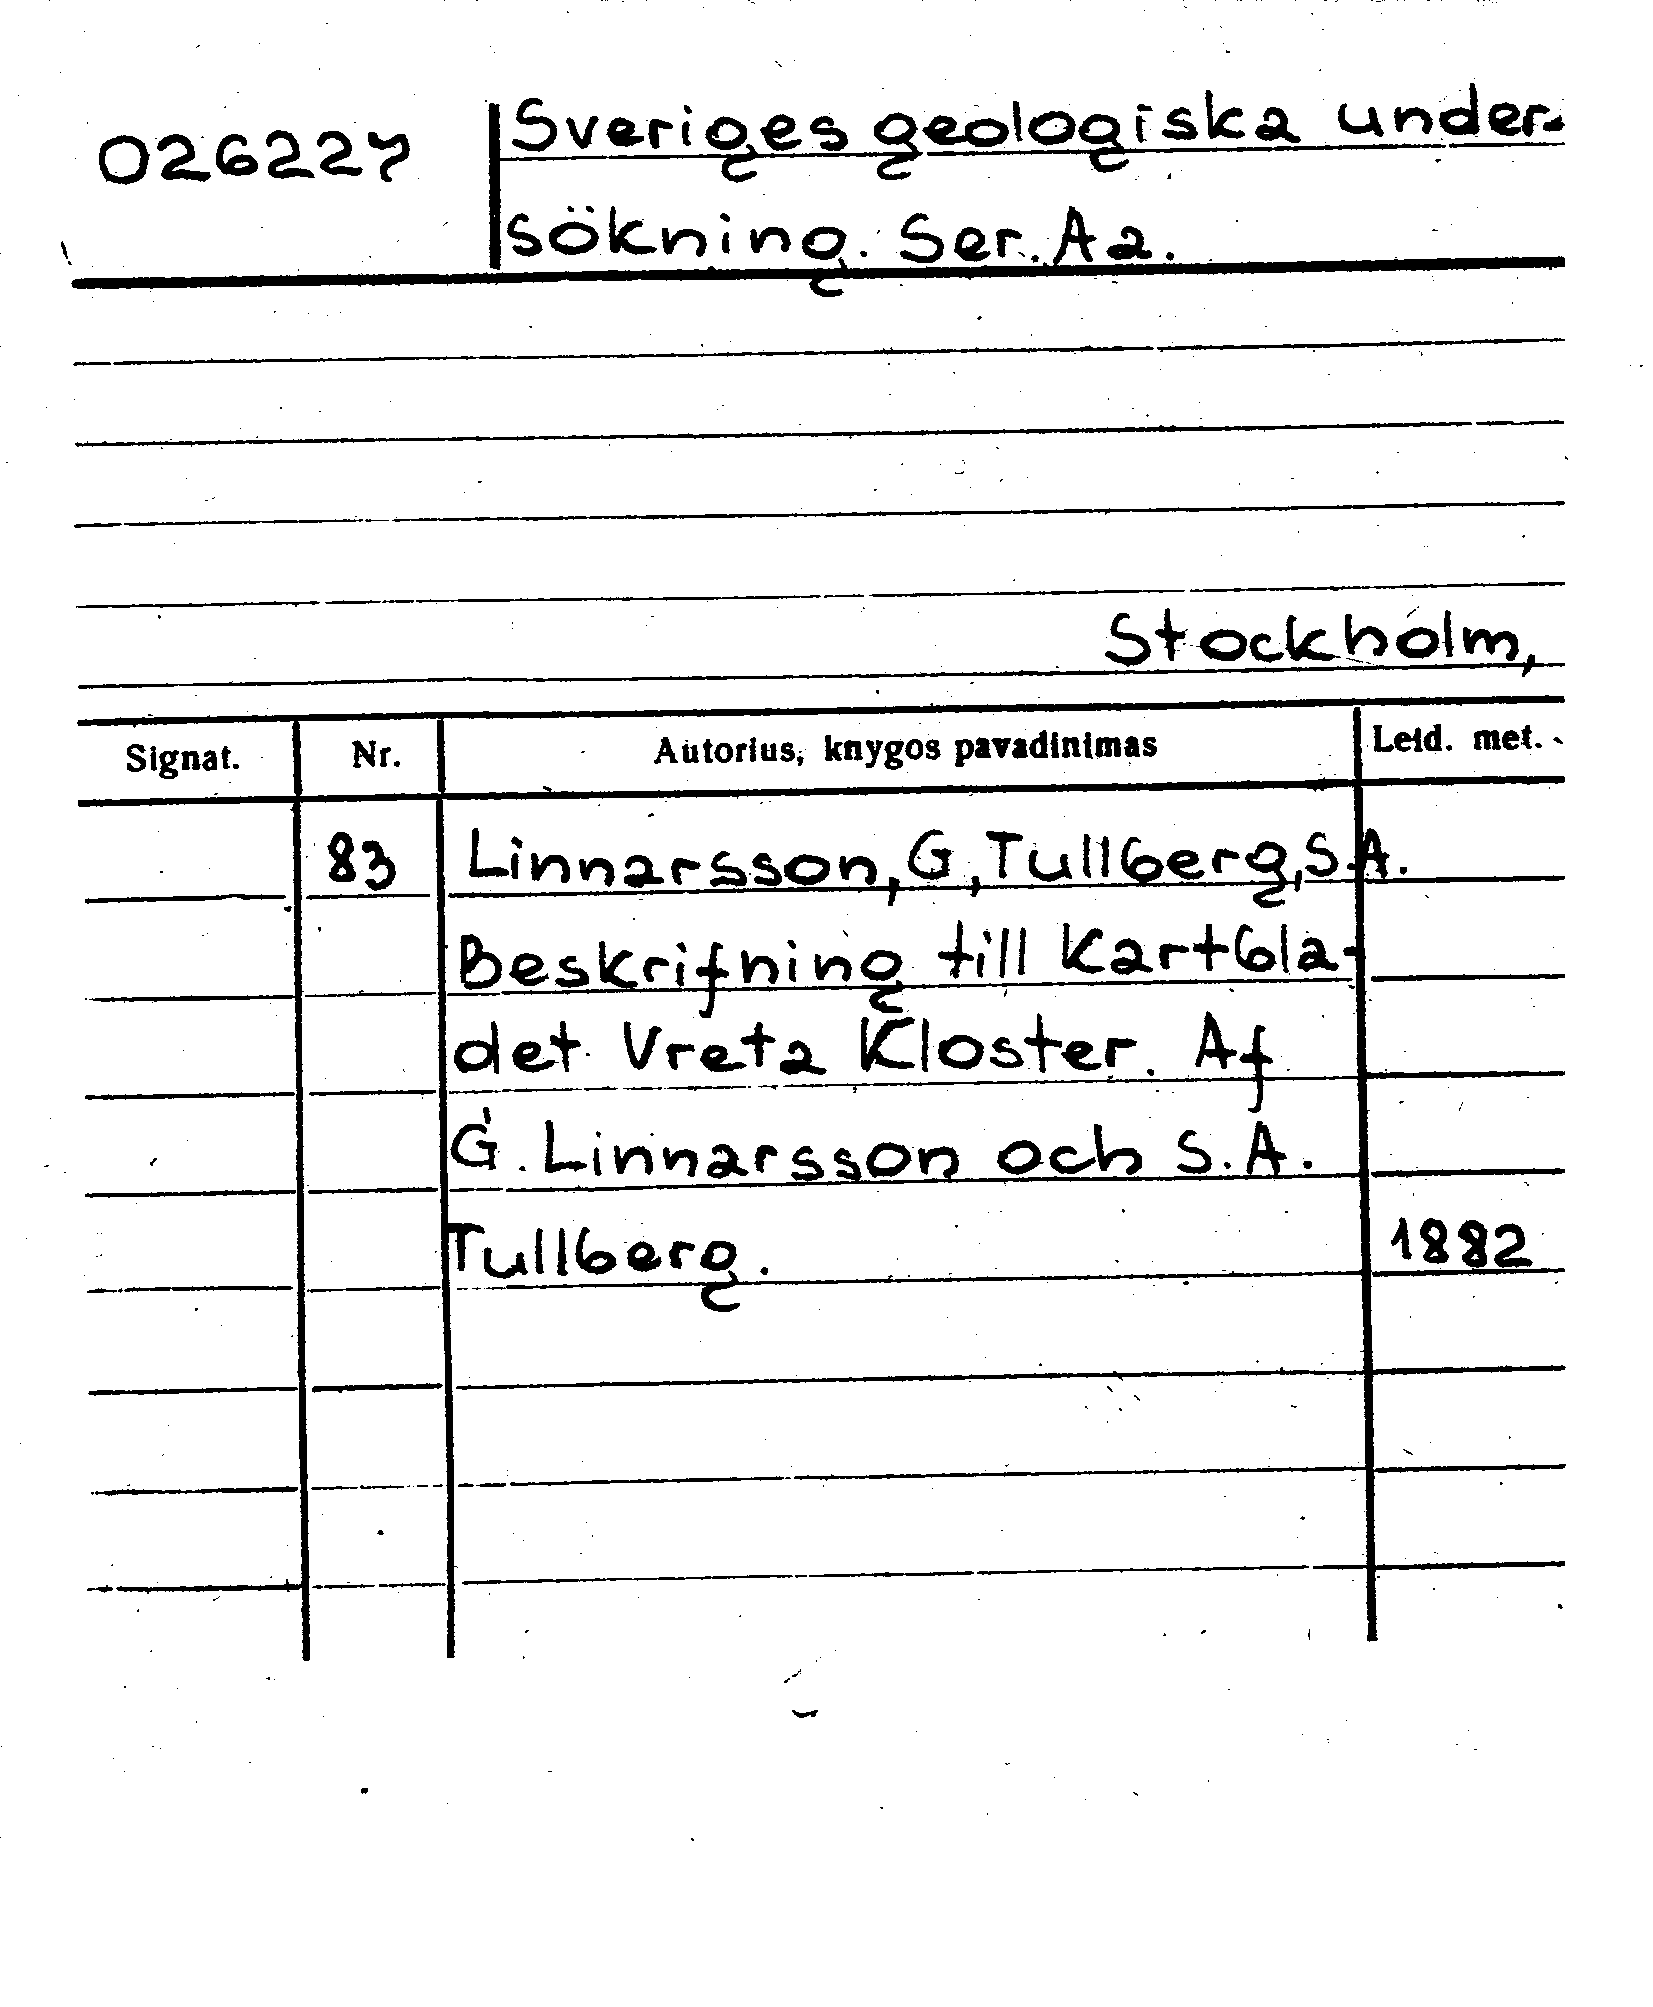 026227 Sveriges geologiska under-
sökning. Ser. Aa.
Stockholm,
Signat. Nr. Autorius, knygos pavadinimas Leid. met.
83 Linnarsson, G, Tullberg, S.A.
Beskrifning till Kartbla-
det Vreta Kloster. Af
G. Linnarsson och S.A.
Tullberg. 1882